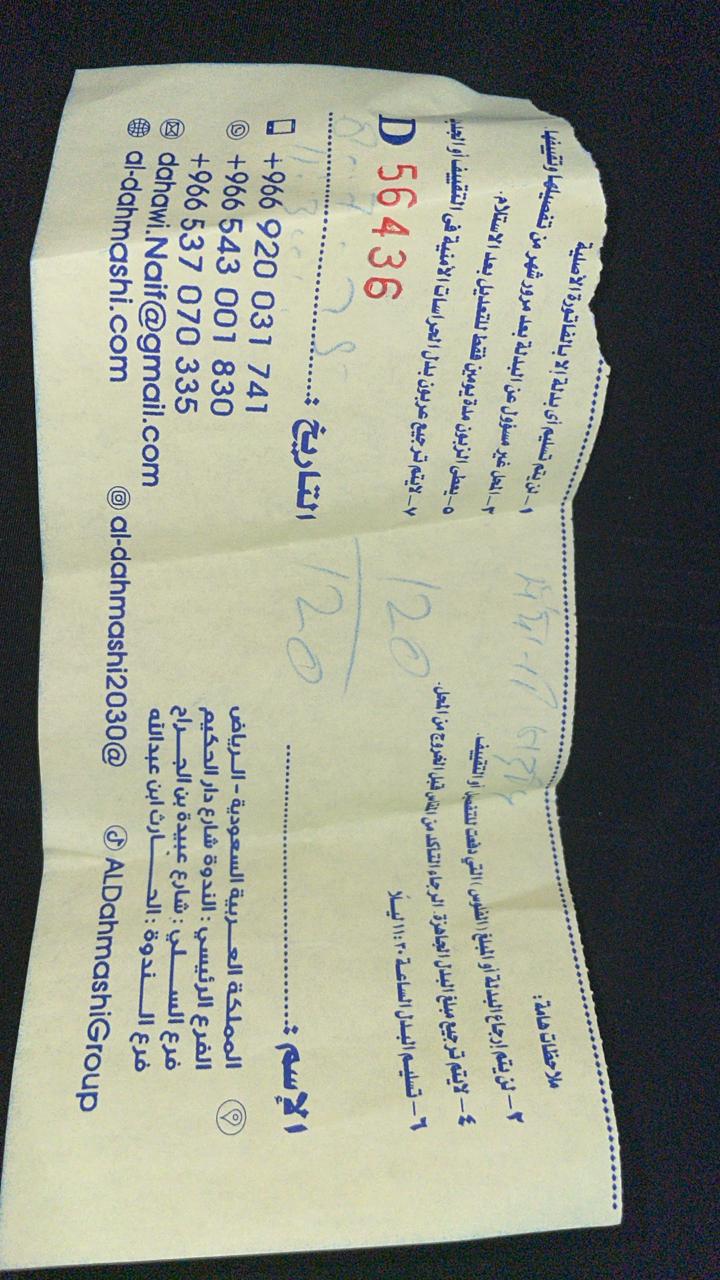 ملاحظات هامة:
١- لن يتم تسليم أي بدلة إلا بالفاتورة الأصلية
٢- لن يتم إرجاع البدلة أو المبلغ (الفلوس) التي دفعت للتفصيل أو التقييف.
٣- المحل غير مسؤول عن البدلة بعد مرور شهر من تفصيلها وتقييفها.
٤- لايتم ترجيع مبلغ البدل الجاهزة. الرجاء التأكد من المقاس قبل الخروج من المحل.
٥- يعطى الزبون مدة يومين فقط للتعديل بعد الاستلام.
٦- تسليم البدل الساعة ١١:٣٠ ليلًا
٧- لايتم ترجيع عربون بدل الحراسات الأمنية في التقييف أو
D 56436
120
120
الإسم :
التاريخ :
المملكة العربية السعودية - الرياض
الفرع الرئيسي : الندوة شارع دار الحكيم
فرع السلي : شارع عبيدة بن الجراح
فرع الندوة : الحارث ابن عبدالله
+966 920 031 741
+966 543 001 830
+966 537 070 335
dahawi.Naif@gmail.com
al-dahmashi.com
al-dahmashi2030@
ALDahmashiGroup